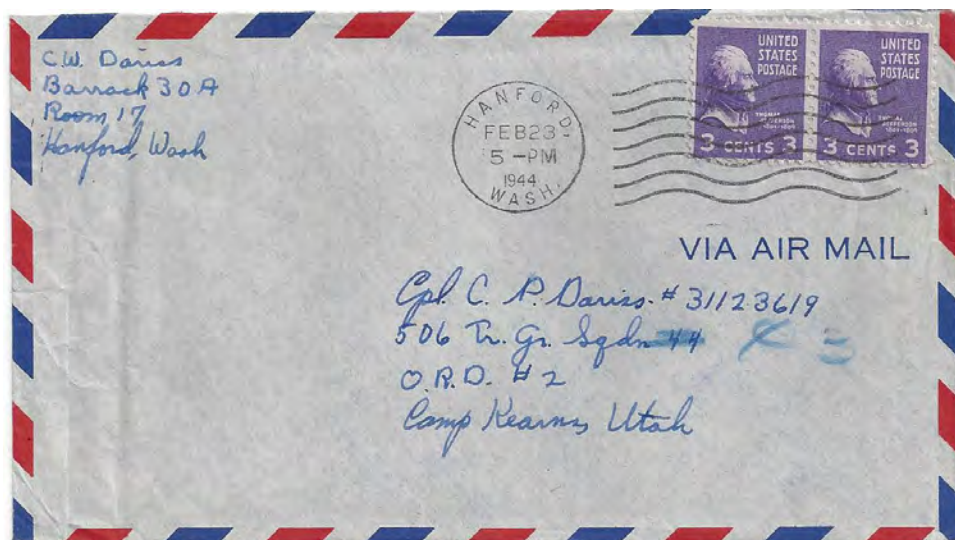 C.W. Dariss
Barrack 30A
Room 17
Hanford, Wash
HANFORD,
FEB 23
5 - PM
1944
WASH.
UNITED
STATES
POSTAGE
THOMAS
JEFFERSON
1801-1809
3 CENTS 3
UNITED
STATES
POSTAGE
THOMAS
JEFFERSON
1801-1809
3 CENTS 3
VIA AIR MAIL
Cpl. C. P. Dariss. # 31123619
506 Tr. Gr. Sqdn 44
O.R.D. # 2
Camp Kearns, Utah